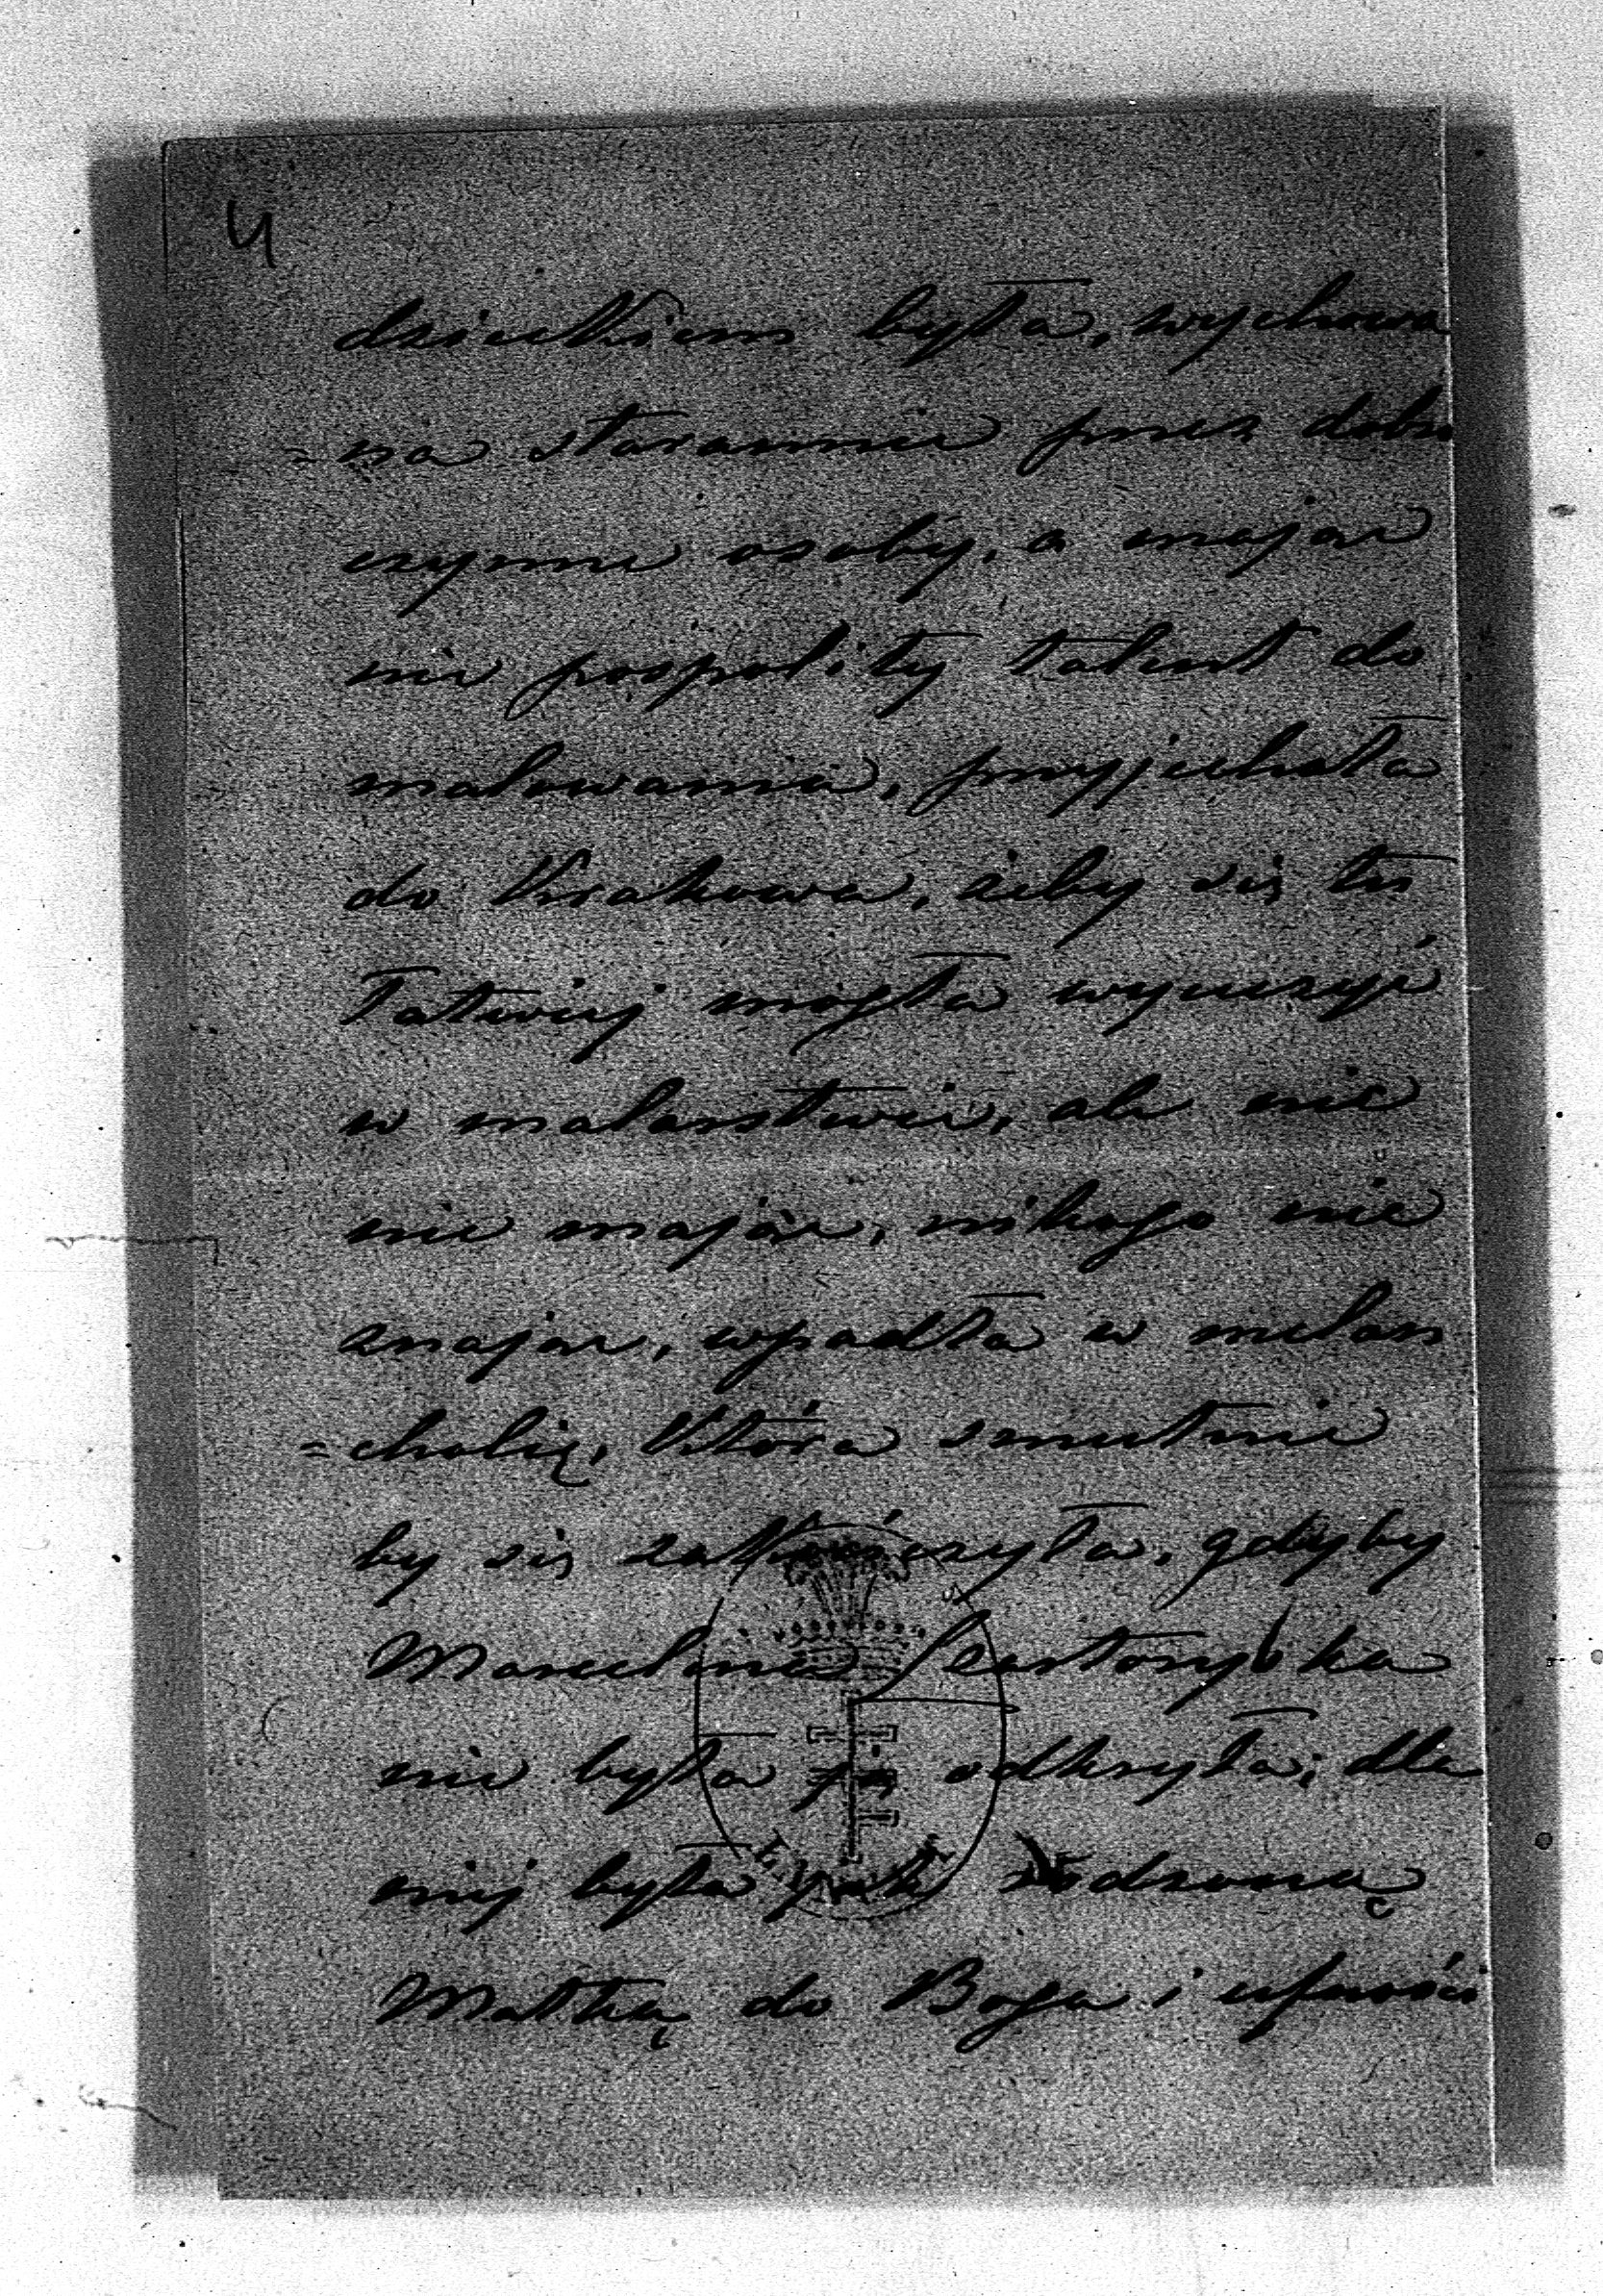 4
dzieckiem była, wychowa
=na starannie przez dobro
czynne osoby, a mając
nie pospolity talent do
malowania, przyjechała
do Krakowa, żeby się tu
łatwiej mogła wyuczyć
w malarstwie, ale nic
nie mając, nikogo nie
znając, wpadła w melan
=cholię, która smutnie
by się zakończyła, gdyby
Marcelina Czartoryska
nie była jej odkryła; dla
niej była jak rodzoną
Matką do Boga i ufności